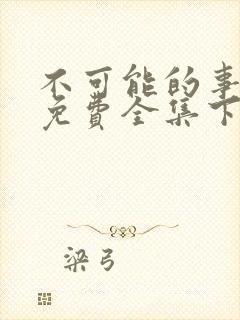 不可能的事
免费全集下
梁弓